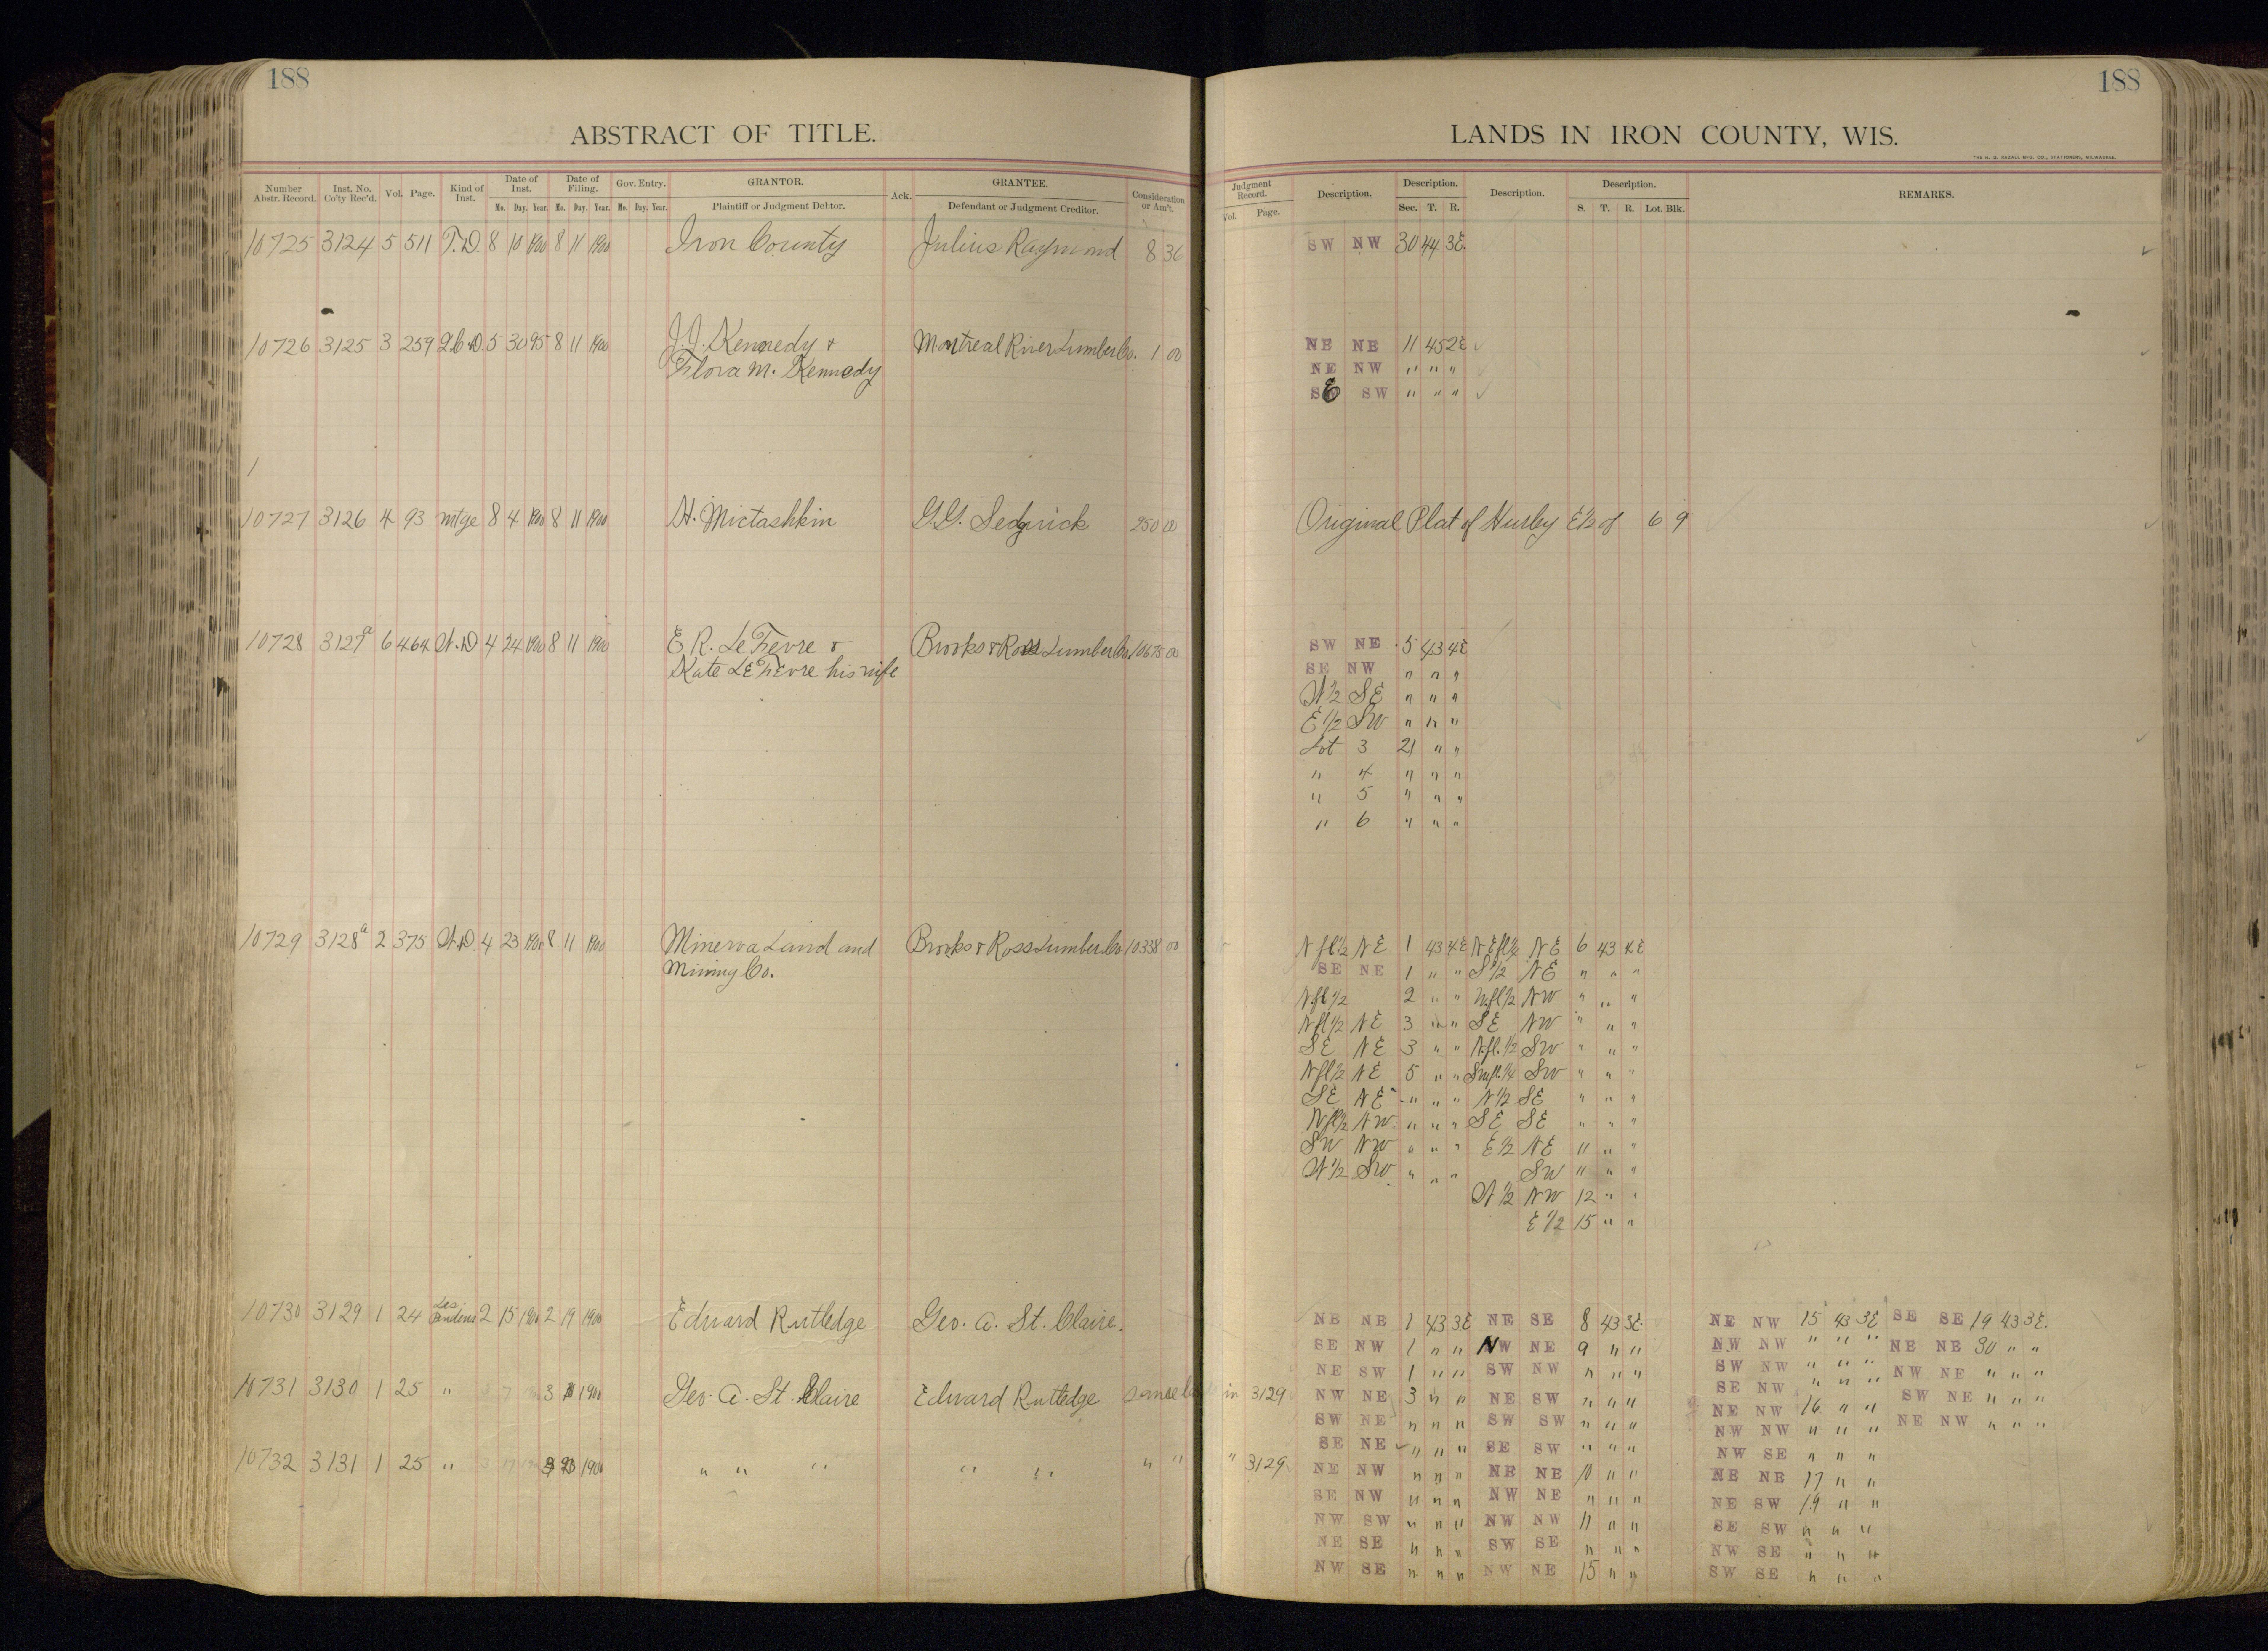 188
ABSTRACT OF TITLE.
Number Abstr. Record. Inst. No. Co'ty Rec'd. Vol. Page. Kind of Inst. Date of Inst. Mo. Day. Year. Date of Filing. Mo. Day. Year. Gov. Entry. Mo. Day. Year. GRANTOR. Plaintiff or Judgment Debtor. Ack. GRANTEE. Defendant or Judgment Creditor. Consideration or Am't.
10725 3124 5 511 T.D. 8 10 1900 8 11 1900 Iron County Julius Raymond 8 36
10726 3125 3 259 Q.C.D. 5 30 95 8 11 1900 J.J. Kennedy & Montreal River Lumber Co. 1 00
Flora M. Kennedy
1
10727 3126 4 93 mtge 8 4 1900 8 11 1900 H. Mictashkin G.G. Sedgwick 250 00
10728 3127a 6 464 W.D 4 24 1900 8 11 1900 E R. Le Fevre & Brooks & Ross Lumber Co 10675 00
Kate LeFevre his wife
10729 3128a 2 375 W.D. 4 23 1900 8 11 1900 Minerva Land and Brooks & Ross Lumber Co 10338 00
Mining Co.
10730 3129 1 24 Les Pendens 2 15 1900 2 19 1900 Edward Rutledge Geo. A. St. Claire.
10731 3130 1 25 " 3 7 3 1900 Geo. A. St. Claire Edward Rutledge same land in 3129
10732 3131 1 25 " 3 17 1900 " " " " " " " " 3129
188
LANDS IN IRON COUNTY, WIS.
Judgment Record. Vol. Page. Description. Description. Sec. T. R. Description. Description. S. T. R. Lot. Blk. REMARKS.
SW NW 30 44 3E.
NE NE 11 45 2E
NE NW " " "
SE SW " " "
Original Plat of Hurley E½ of 6 9
SW NE 5 43 4E
SE NW " " "
W½ SE " " "
E½ SW " " "
Lot 3 21 " "
" 4 " " "
" 5 " " "
" 6 " " "
N fl½ NE 1 43 4E N E fl¼ NE 6 43 4E
SE NE 1 " " S½ NE " " "
N.fl ½ 2 " " N.fl½ NW " " "
N fl½ NE 3 " " SE NW " " "
SE NE 3 " " N.fl.½ SW " " "
N fl½ NE 5 " " Swfl.¼ SW " " "
SE NE " " " N½ SE " " "
N fl½ NW " " " SE SE " " "
SW NW " " " E½ NE 11 " "
W½ SW " " " SW " " "
W½ NW 12 " "
E½ 15 " "
NE NE 1 43 3E NE SE 8 43 3E. NE NW 15 43 3E SE SE 19 43 3E.
SE NW 1 " " NW NE 9 " " NW NW " " " NE NE 30 " "
NE SW 1 " " SW NW " " " SW NW " " " NW NE " " "
NW NE 3 " " NE SW " " " SE NW " " " SW NE " " "
SW NE " " " SW SW " " " NE NW 16 " " NE NW " " "
SE NE " " " SE SW " " " NW NW " " "
NE NW " " " NE NE 10 " " NW SE " " "
SE NW " " " NW NE " " " NE NE 17 " "
NW SW " " " NW NW 11 " " NE SW 19 " "
NE SE " " " SW SE " " " SE SW " " "
NW SE " " " NW NE 15 " " NW SE " " "
SW SE " " "